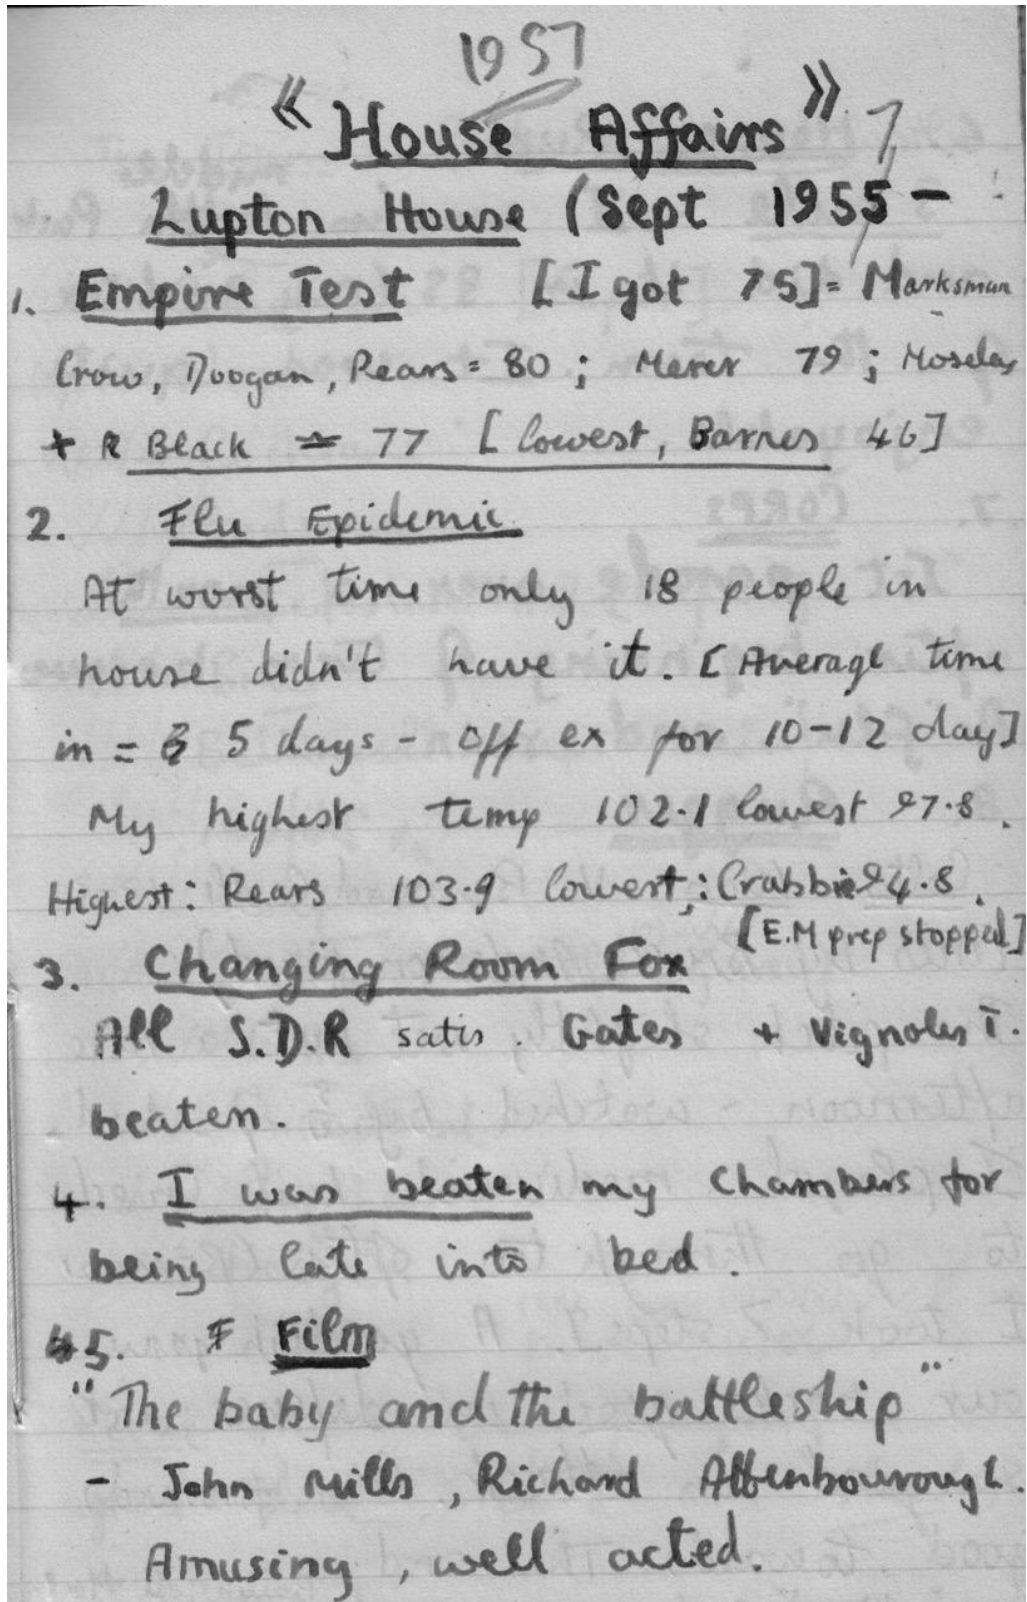 1957
« House Affairs »
Lupton House (Sept 1955 - 7
1. Empire Test [I got 75] = Marksman
Crow, Doogan, Rears = 80 ; Merer 79 ; Moseley
+ R Black = 77 [lowest, Barnes 46]
2. Flu Epidemic
At worst time only 18 people in
house didn't have it. [Average time
in = 5 days - off ex for 10-12 day]
My highest temp 102.1 lowest 97.8.
Highest: Rears 103.9 lowest: Crabbie 94.8.
[E.M prep stopped]
3. Changing Room Fox
All S.D.R satis. Gates + Vignoles T.
beaten.
4. I was beaten my Chambers for
being late into bed.
5. F Film
"The baby and the battleship"
- John Mills, Richard Attenbourough.
Amusing, well acted.